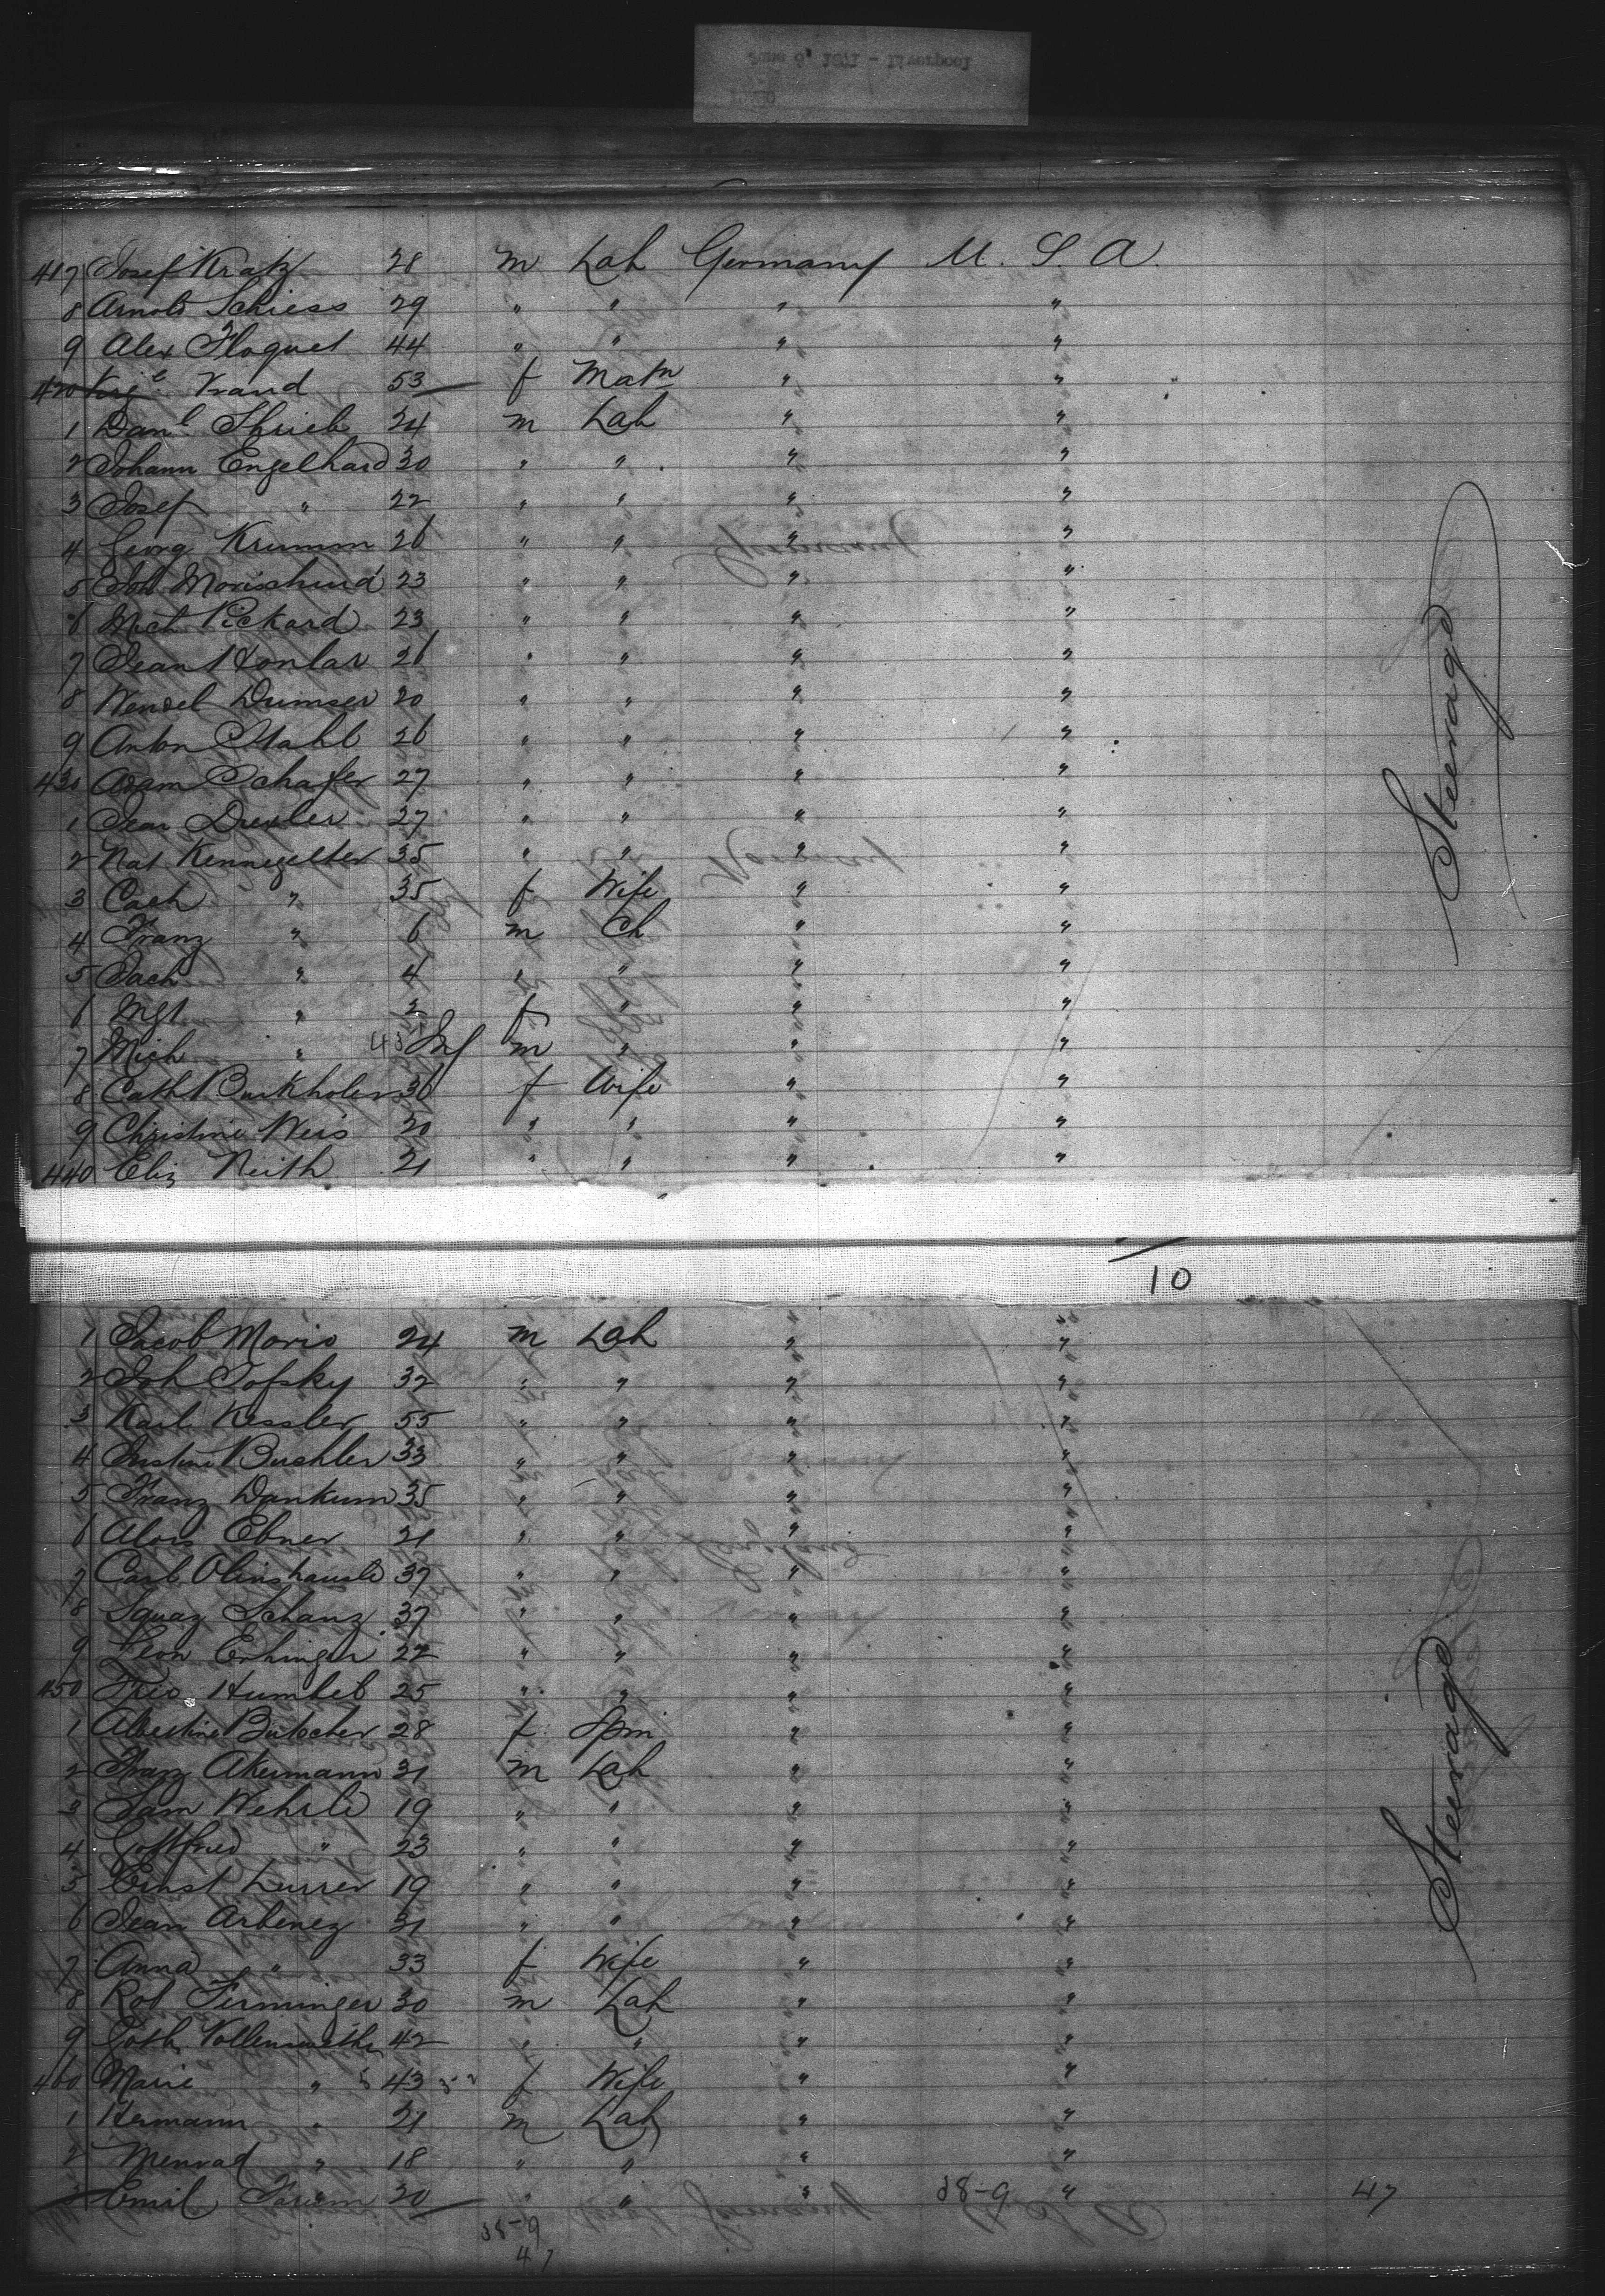 June 6, 1871 - Liverpool
417 Josef Kratz 28 m Lab Germany U. S. A.
8 Arnold Schiess 29 " " " "
9 Alex Floquet 44 " " " "
420 Vrand 53 f Matn " "
1 Danl Shrieb 24 m Lab " "
2 Johann Engelhard 30 " " " "
3 Josef " 22 " " " "
4 Georg Krumm 26 " " " "
5 Joh 23 " " " "
6 Mich Pickard 23 " " " "
7 Jean Honlar 26 " " " "
8 Wendel Dumser 20 " " " "
9 Anton Stahl 26 " " " "
430 Adam Schafer 27 " " " "
1 Jean Drexler 27 " " " "
2 Nat Kennegelter 35 " " " "
3 Cath " 35 f Wife " "
4 Franz " 6 m Ch " "
5 Jach " 4 " " " "
6 Mgt " 2 f " " "
7 Mich " Inf m " " "
8 Cath Burkholer 36 f Wife " "
9 Christine Weis 20 " " " "
440 Eliz Neith 21 " " " "
Steerage
10
1 Jacob Moris 24 m Lab " "
2 Joh Tofsky 32 " " " "
3 Karl Kessler 55 " " " "
4 Justin Buehler 33 " " " "
5 Franz Dankum 35 " " " "
6 Alois Ebner 21 " " " "
7 Carl 37 " " " "
8 Ignaz Schanz 37 " " " "
9 Leon Erhinger 22 " " " "
450 Fried Humbel 25 " " " "
1 Albertine Butscher 28 f Spin " "
2 Franz Akermann 31 m Lab " "
3 Sam Wehrli 19 " " " "
4 Gottfried " 23 " " " "
5 Ernst Lurrer 19 " " " "
6 Jean Arbenez 31 " " " "
7 Anna " 33 f Wife " "
8 Rob Firminger 30 m Lab " "
9 Gotth Vollenweither 42 " " " "
460 Marie " 43 f Wife " "
1 Hermann " 21 m Lab " "
2 Menrad " 18 " " " "
3 Emil 20 " " " 38-9 " 47
38-9
47
Steerage